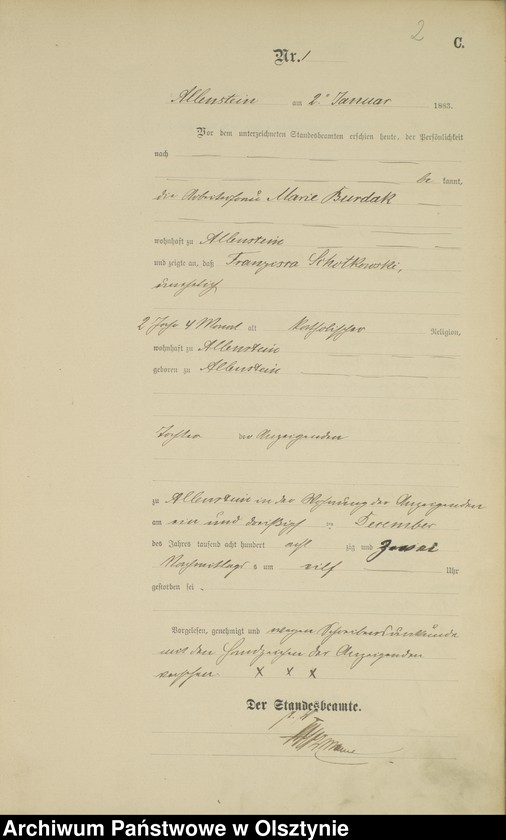 2
C.
Nr. 1
Allenstein am 2ⁿ Januar 1883.
Vor dem unterzeichneten Standesbeamten erschien heute, der Persönlichkeit
nach
be kannt,
die Arbeiterfrau Marie Burdak
wohnhaft zu Allenstein
und zeigte an, daß Franzisca Scholkowski,
unehelich
2 Jahr 4 Monat alt katholischer Religion,
wohnhaft zu Allenstein
geboren zu Allenstein
Tochter der Anzeigenden
zu Allenstein in der Wohnung der Anzeigenden
am ein und dreißigst en Dezember
des Jahres tausend acht hundert acht zig und zwei
Nachmittags um elf Uhr
gestorben sei.
Vorgelesen, genehmigt und wegen Schreibensunkunde
mit dem Handzeichen der Anzeigenden
versehen X X X
Der Standesbeamte.
Archiwum Państwowe w Olsztynie